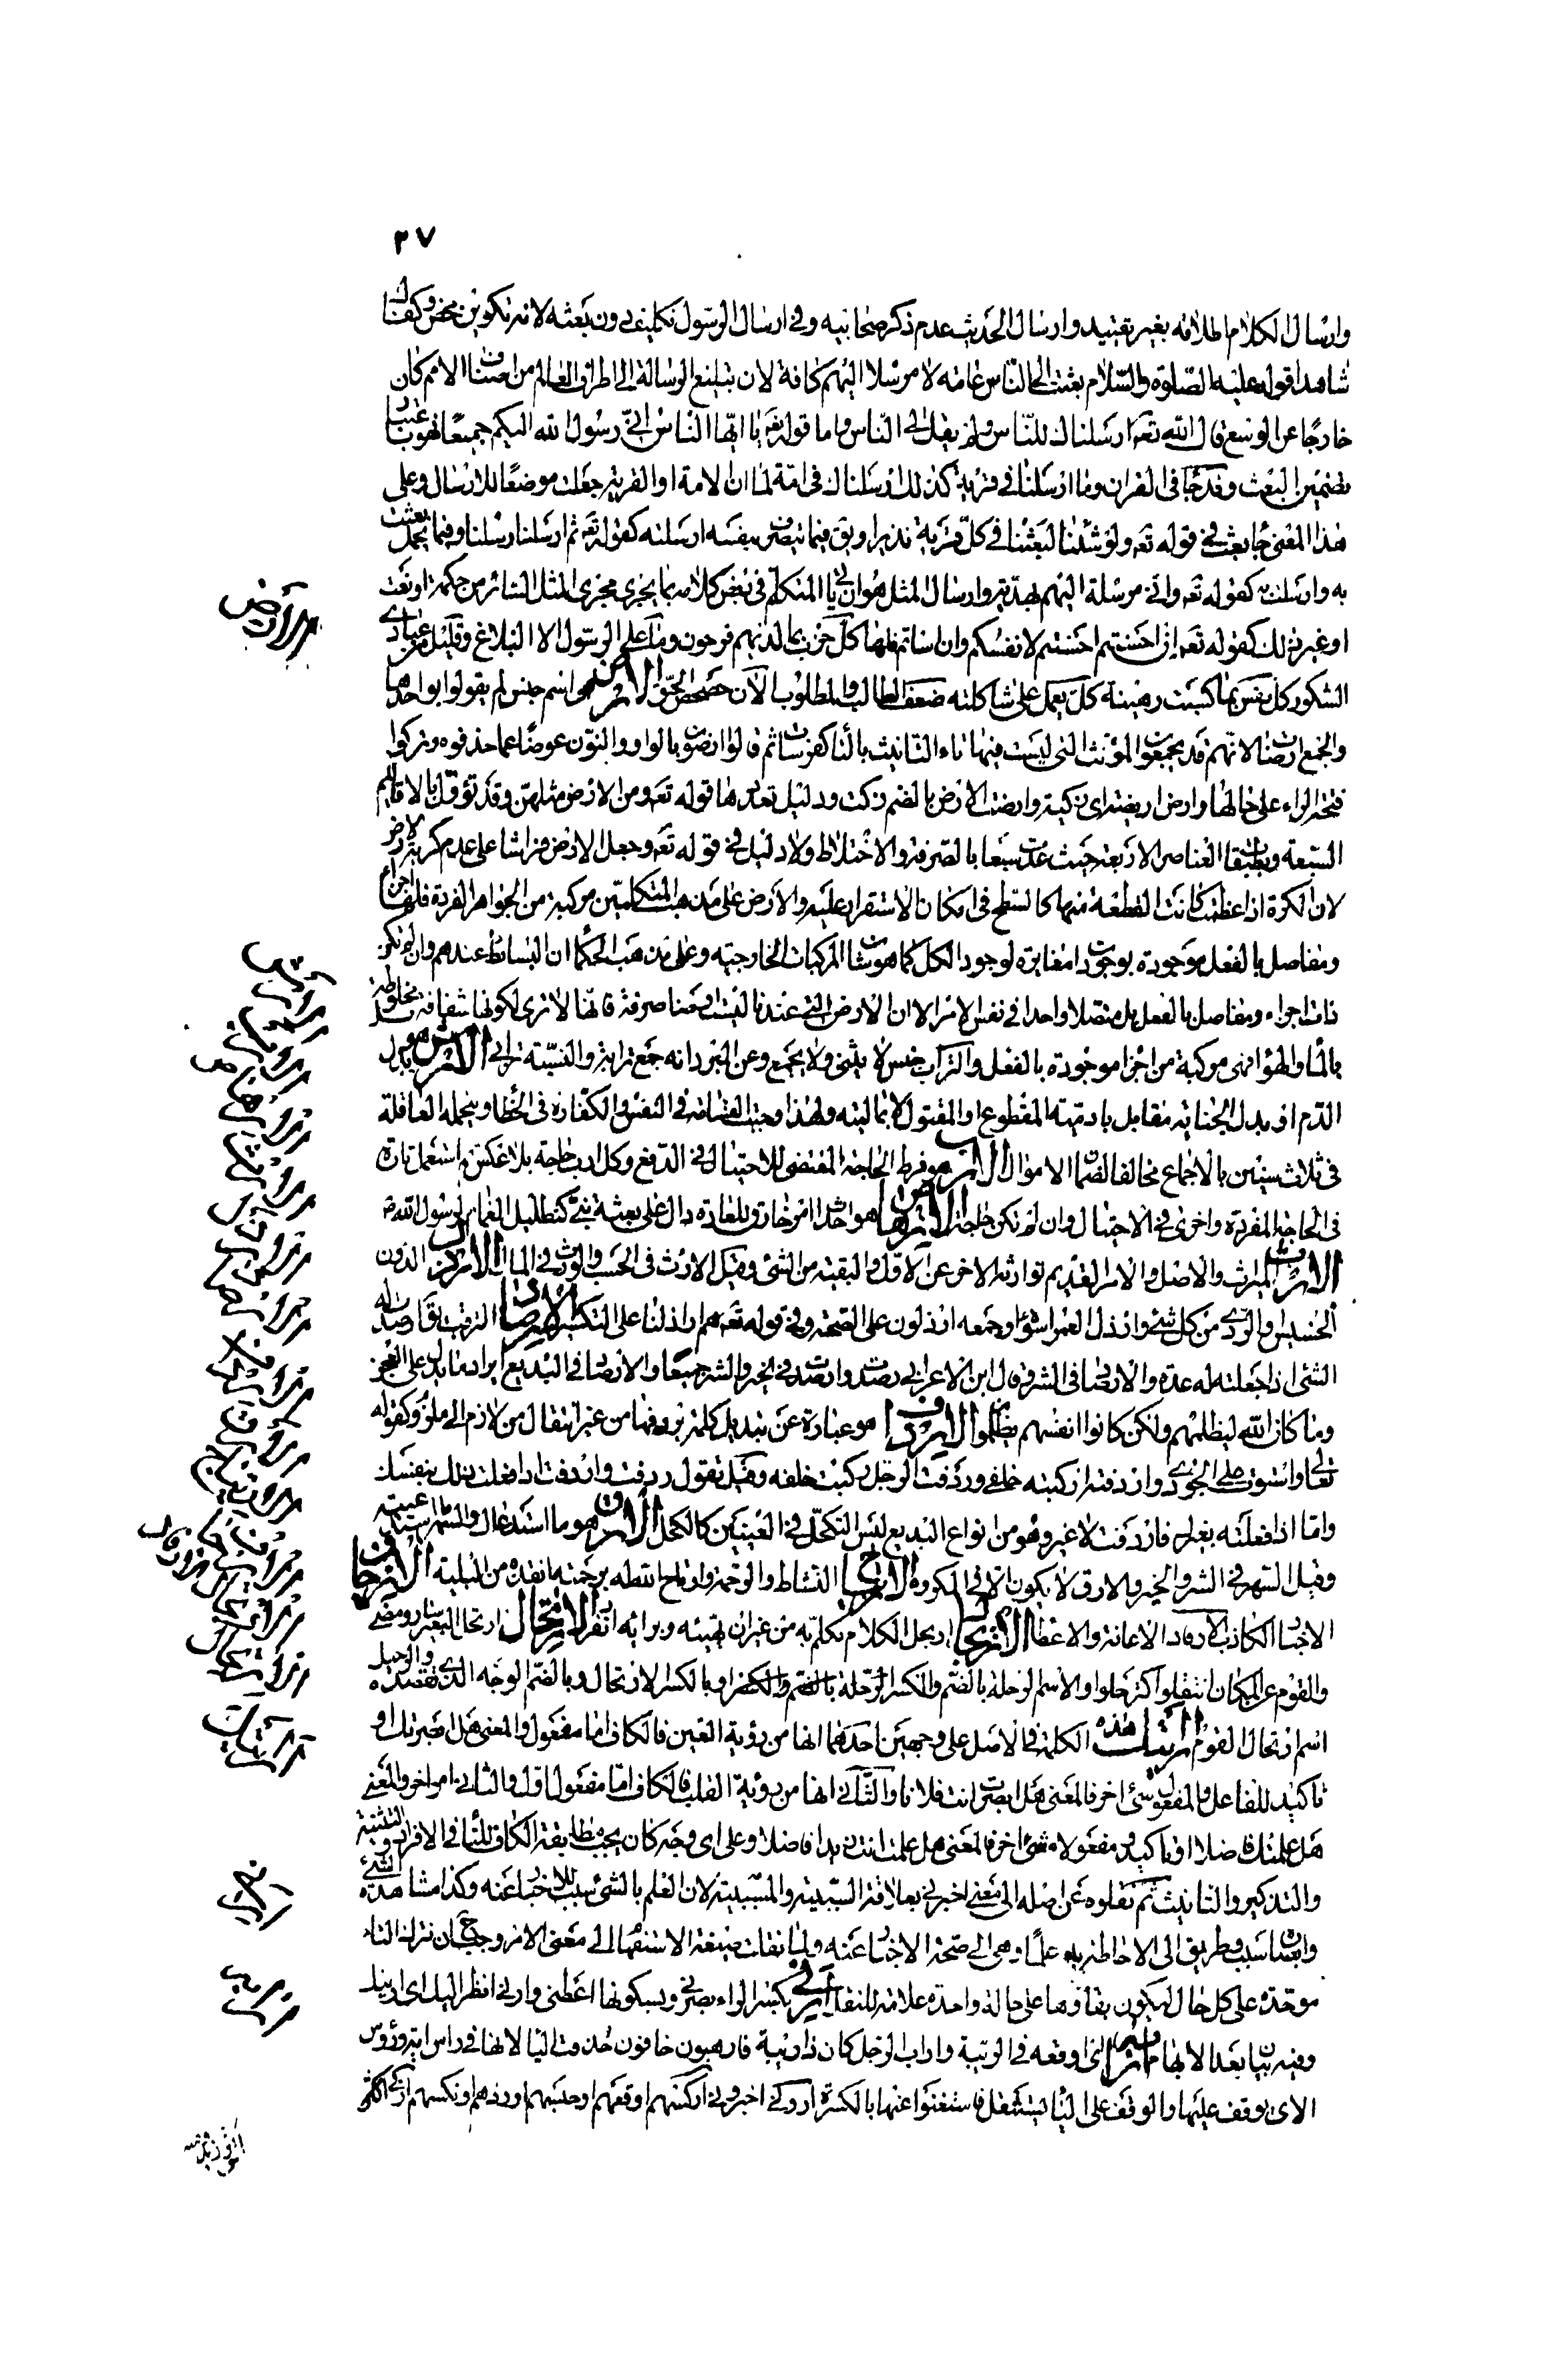 ٢٧
وارسال الكلام اطلاقه بغير تقييد وارسال الحديث عدم ذكر صحابيه وفي ارسال الرسول تكليف دون بعثه لانه تكوين محض وكفاك
شاهدا قوله عليه الصلوة والسلام بعثت الى الناس عامة لا مرسلا اليهم كافة لان تبليغ الرسالة الى اطراف العالم من اصناف الامم كان
خارجا عن الوسع قال الله تعه ارسلناك للناس ولم يقل الى الناس واما قوله تعه يا ايها الناس اني رسول الله اليكم جميعا فهو باعتبار
تضمين البعث وقد جاء في القران وما ارسلنا في قرية كذلك ارسلناك في امة لما ان الامة او القرية جعلت موضعا للارسال وعلى
هذا المعنى جا بعث في قوله تعه ولو شئنا لبعثنا في كل قرية نذيرا ويق فيما يتصرف بنفسه ارسلته كقوله تعه ثم ارسلنا رسلنا وفيما يحمل بعثت
به وارسلت به كقوله تعه واني مرسلة اليهم بهدية وارسال المثل هو ان يأتي المتكلم في بعض كلامه بما يجري مجرى المثل السائر من حكمة او نعت
او غير ذلك كقوله تعه ان احسنتم احسنتم لانفسكم وان اساتم فلها كل حزب بما لديهم فرحون وما على الرسول الا البلاغ وقليل من عبادي
الشكور كل نفس بما كسبت رهينة كل يعمل على شاكلته ضعف الطالب والمطلوب الآن حصحص الحق الارض هو اسم جنس لم يقولوا بواحدها
والجمع ارضات لانهم قد يجمعون المؤنث التي ليست فيها تاء التانيث بالتاء كفرسات ثم قالوا ارضون بالواو والنون عوضا عما حذفوه وتركوا
فتحة الراء على حالها وارض اريضة اي زكية وارضت الارض بالضم زكت ودليل تعددها قوله تعه ومن الارض مثلهن وقد تؤول بالاقاليم
السبعة وبطبقات العناصر الاربعة حيث عدت سبعا بالصرفة والاختلاط ولا دليل في قوله تعه وجعل الارض فراشا على عدم كرية الارض
لان الكرة اذا عظمت كانت القطعة منها كالسطح في امكان الاستقرار عليه والارض على مذهب المتكلمين مركبة من الجواهر الفردة فلها اجزاء
ومفاصل بالفعل موجودة بوجود مغايرة لوجود الكل كما هو شان المركبات الخارجية وعلى مذهب الحكما ان البسائط عندهم وان لم تكن
ذات اجزاء ومفاصل بالفعل بل متصلا واحدا في نفس الامر الا ان الارض التي عندنا ليست ارضا صرفة فانها لا ترى لكونها شفافة بل مخلوطة
بالماء والهواء فهي مركبة من اجزا موجودة بالفعل والتراب جنس لا يثنى ولا يجمع وعن المبرد انه جمع ترابة والنسبة ترابي الارش هو بدل
الدم او بدل الجناية مقابل بادمية المقطوع او المقتول لا بماليته ولهذا وجبت القسامة في النفس والكفارة في الخطا ويتحمله العاقلة
في ثلاث سنين بالاجماع مخالفا لضمان الاموال الارب هو فرط الحاجة المقتضي للاحتيال في الدفع وكل ارب حاجة بلا عكس ثم استعمل تارة
في الحاجة المفردة واخرى في الاحتيال وان لم تكن حاجة الارهاص هو احداث امر خارق للعادة دال على بعثة نبي كتظليل الغمام لرسول الله ص
الارث الميراث والاصل والامر القديم توارثه الاخر عن الاول والبقية من الشئ وقيل الارث في الحسب والورث في المال الارذل الدون
الخسيس والردي من كل شئ وارذل العمر اسوأه وجمعه ارذلون على الصحة وفي قوله تعه هم اراذلنا على التكسير الارصاد الترقب يق ارصدت له
الشئ اذا جعلته له عدة والارصاد في الشر قال ابن الاعرابي رصدت وارصدت في الخير والشر جميعا والارصاد في البديع ايراد ما يدل على العجز
وما كان الله ليظلمهم ولكن كانوا انفسهم يظلمون الارداف هو عبارة عن تبديل كلمة بردفها من غير انتقال من لازم الى ملزوم كقوله
تعالى واستوت على الجودي واردفته اركبته خلفي وردفت الرجل ركبت خلفه وقيل تقول ردفت واردفت اذا فعلت ذلك بنفسك
واما اذا فعلته بغيرك فاردفت لا غير وهو من انواع البديع ليس التكحل في العينين كالكحل الارق هو ما استدعاك والسهر ما استدعيته
وقيل السهر في الشر والخير والارق لا يكون الا في المكروه الارتياح النشاط والرحمة وارتاح الله له برحمته انقذه من البلية الارجاف
الاخبار الكاذب الارفاد الاعانة والاعطا الارتجال ارتجل الكلام تكلم به من غير ان يهيئه وبرايه انفرد الارتحال ارتحل البعير سار ومضى
والقوم عن المكان انتقلوا كترحلوا والاسم الرحلة بالضم والكسر او بالكسر الارتحال وبالضم الوجه الذي تقصده والرحيل
اسم ارتحال القوم ارأيت هذه الكلمة في الاصل على وجهين احدهما انها من رؤية العين فالكاف اما مفعول والمعنى هل ابصرتك او
تاكيد للفاعل والمفعول شئ اخر فالمعنى هل ابصرت انت فلانا والثاني انها من رؤية القلب فالكاف اما مفعول اول والثاني امر اخر والمعنى
هل علمتك فاضلا او تاكيد ومفعولاه شئ اخر فالمعنى هل علمت انت زيدا فاضلا وعلى اي وجه كان يجب مطابقة الكاف للتاء في الافراد والتثنية
والتذكير والتانيث ثم نقلوه عن اصله الى معنى اخبرني بعلاقة السببية والمسببية لان العلم بالشئ سبب للاخبار عنه وكذا مشاهدة الشئ
وابصاره سبب وطريق الى الاحاطة به علما وهي الى صحة الاخبار عنه ولما نقلت صيغة الاستفهام الى معنى الامر وجب ان تترك التاء
موحدة على كل حال ليكون بقاؤها على حالة واحدة علامة للنقل ارني بكسر الراء بصرني وبسكونها اعطني وارني انظر اليك اي ارينك
وفيه بيان بعد الابهام ارابه اي اوقعه في الريبة واراب الرجل كان ذا ريبة فارهبون خافون حذفت اليا لانها في راس اية ورؤوس
الاي يوقف عليها والوقف على الياء يستثقل فاستغنوا عنها بالكسرة اروني اخبروني اركسهم اوقعهم او حبسهم او ردهم او نكسهم ازكى اكثر
الارض
الارش
الارب
الارهاص
الارث
الارذل
الارصاد
الارداف
الارق
الارتياح
الارجاف
الارفاد
الارتجال
الارتحال
ارأيت
ارني